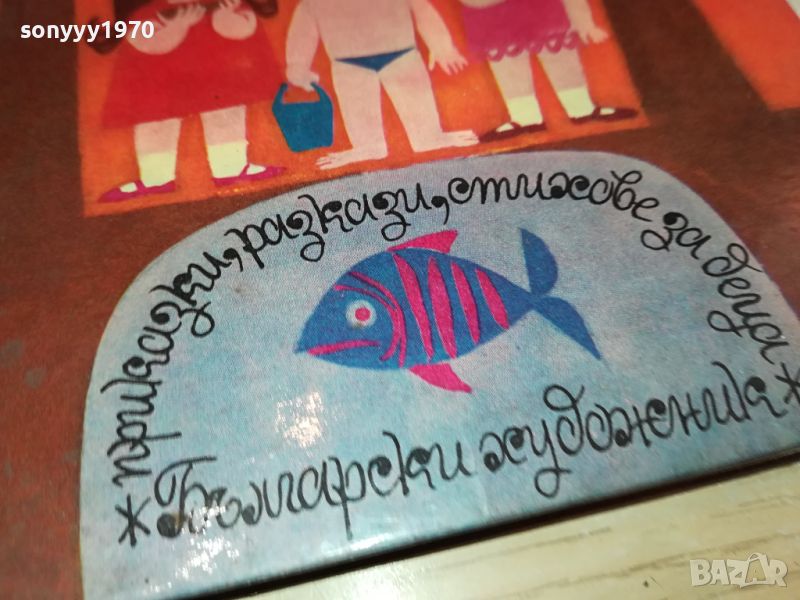 sonyyy1970
* приказки, разкази, стихове за деца *
Български художник
BAZAR